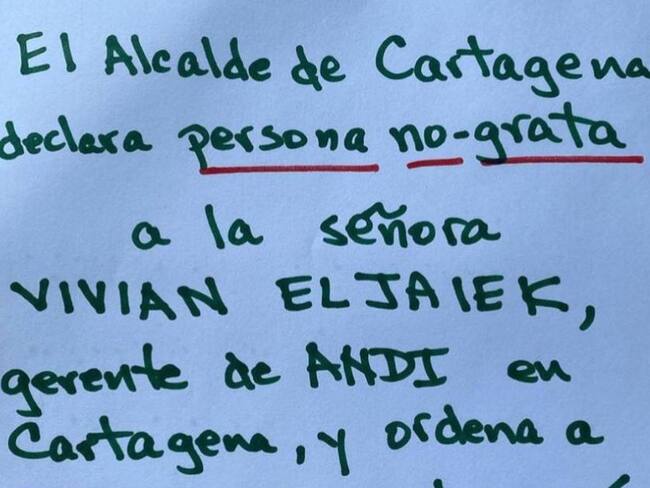 El Alcalde de Cartagena
declara persona no-grata
a la señora
VIVIAN ELJAIEK,
gerente de ANDI en
Cartagena, y ordena a